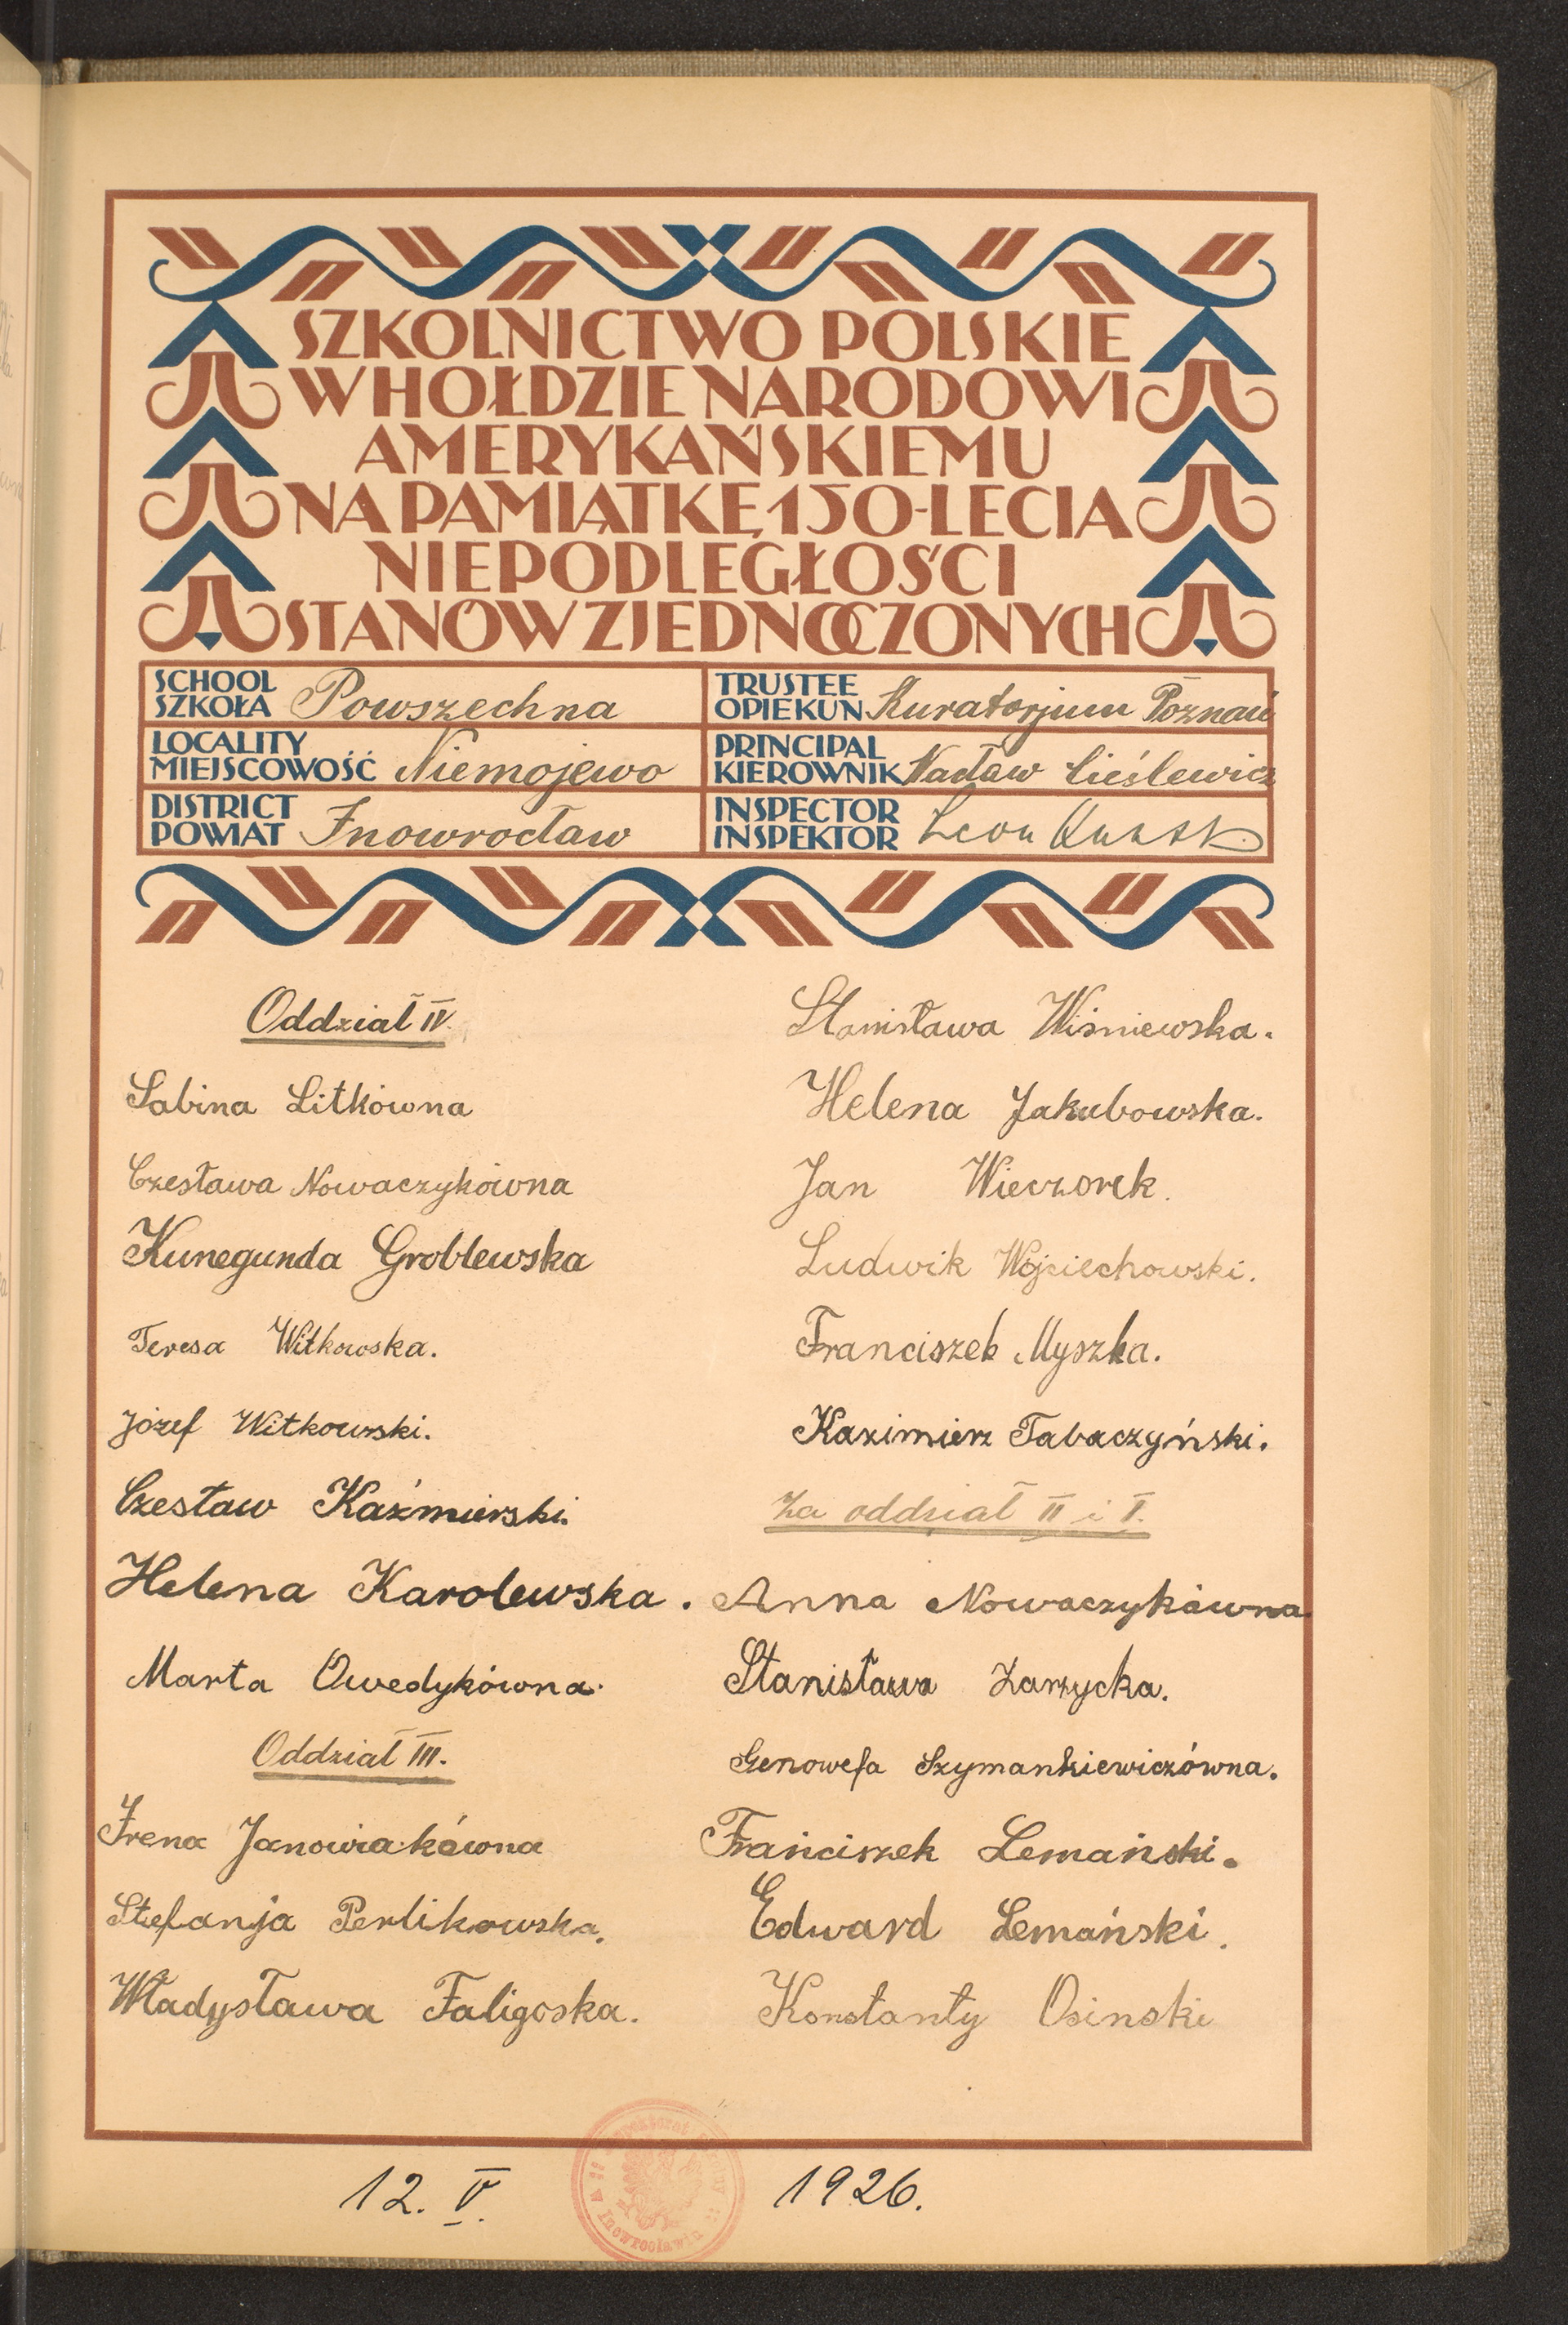 SZKOLNICTWO POLSKIE
W HOŁDZIE NARODOWI
AMERYKAŃSKIEMU
NA PAMIĄTKĘ 150-LECIA
NIEPODLEGŁOŚCI
STANÓW ZJEDNOCZONYCH
SCHOOL
SZKOŁA Powszechna
TRUSTEE
OPIEKUN Kuratorjum Poznań
LOCALITY
MIEJSCOWOŚĆ Niemojewo
PRINCIPAL
KIEROWNIK Wacław Cieślewicz
DISTRICT
POWIAT Inowrocław
INSPECTOR
INSPEKTOR Leon
Oddział IV.
Sabina Litkówna
Czesława Nowaczykówna
Kunegunda Groblewska
Teresa Witkowska.
Józef Witkowski.
Czesław Kaźmierski.
Helena Karolewska.
Marta Owedykówna.
Oddział III.
Irena Janowiakówna
Stefanja Perlikowska.
Władysława Faligoska.
Stanisława Wiśniewska.
Helena Jakubowska.
Jan Wieczorek.
Ludwik Wojciechowski.
Franciszek Myszka.
Kazimierz Tabaczyński.
Za oddział II i I.
Anna Nowaczykówna.
Stanisława Zarzycka.
Genowefa Szymankiewiczówna.
Franciszek Lemański.
Edward Lemański.
Konstanty Osinski
12. V. 1926.